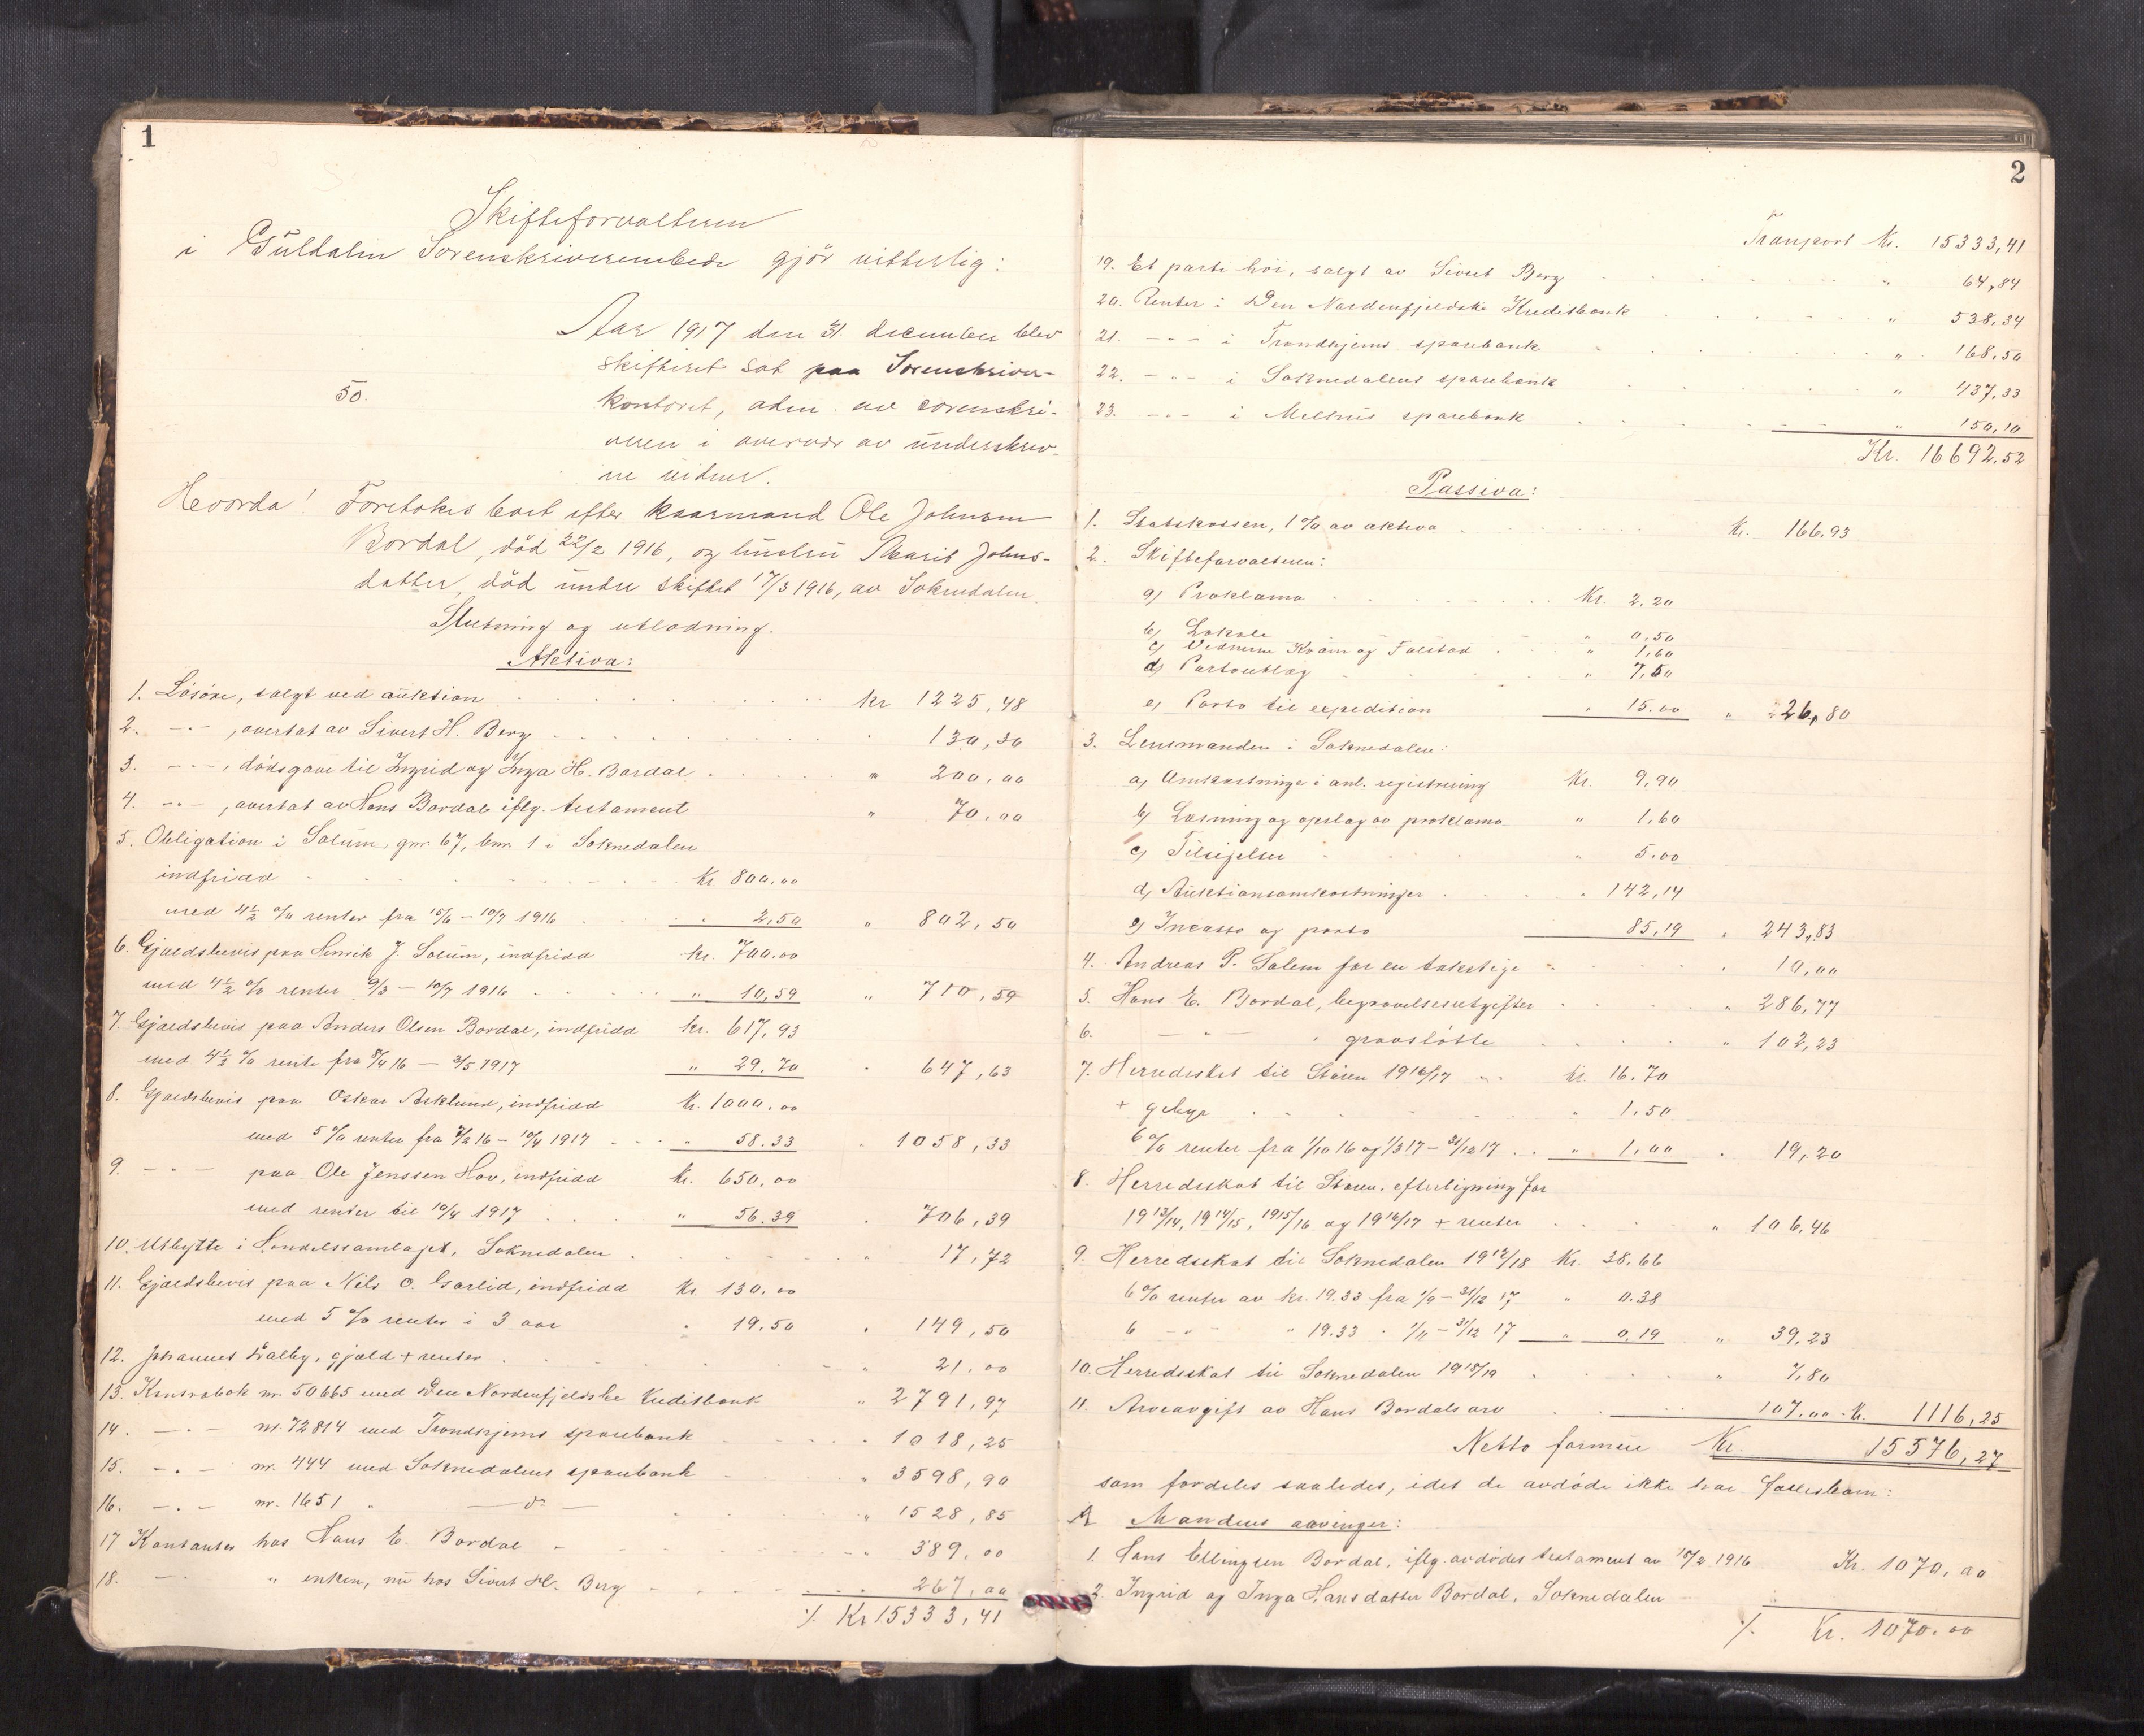 1
Skifteforvalteren
i Guldalen Sorenskriverembede gjör vitterlig:
Aar 1917 den 31. december blev
skifteret sat paa Sorenskriver-
50.
kontoret, aden. av sorenskri-
veren i overvær av underskrev-
ne vidner.
Hvorda! Foretokes boet efter kaarmand Ole Johnsen
Bordal, död 22/2 1916, og hustru Marit Johns-
datter, död under skiftet 17/3 1916, av Soknedalen.
Slutning og utlodning.
Aktiva:
1. Lösöre, solgt ved auktion kr 1225,48
2. -"- , overtat av Sivert H. Berg 130,30
3. -"- , dödsgave til Ingrid og Inga H. Bordal " 200,00
4. -"- , overtat av Hans Bordal iflg. testament " 70,00
5. Obligation i Solum, gnr. 67, bnr. 1 i Soknedalen
indfridd Kr. 800.00
med 4½ % renter fra 15/6 - 10/7 1916 " 2,50 " 802,50
6. Gjældsbevis paa Henrik J. Solum, indfridd kr. 700.00
med 4½ % renter 9/3 - 10/7 1916 " 10,59 " 710,59
7. Gjældsbevis paa Anders Olsen Bordal, indfridd kr. 617,93
med 4½ % rente fra 8/4 16 - 3/5 1917 " 29.70 " 647,63
8. Gjældsbevis paa Oskar Asklund, indfridd Kr. 1000.00
med 5 % renter fra 16 - 10/4 1917 " 58.33 " 1058,33
9. -"- paa Ole Jenssen Hov, indfridd kr. 650,00
med renter til 10/4 1917 " 56.39 " 706,39
10. Utbytte i Handelssamlaget, Soknedalen " 17,72
11. Gjældsbevis paa Nils O. Garlid, indfridd Kr. 130.00
med 5 % renter i 3 aar " 19.50 " 149,50
12. Johannes Valby, gjæld + renter " 21.00
13. Kontrabok nr. 50665 med Den Nordenfjeldske Kreditbank " 2791,97
14. -"- nr. 72814 med Trondhjems sparebank " 1018,25
15. -"- nr. 444 med Soknedalens sparebank " 3598,90
16. -"- nr. 1651 " - do - " 1528,85
17 Kontanter hos Hans E. Bordal " 389,00
18. - " enken, nu hos Sivert H. Berg " 267,00
./. Kr 15333,41
2
Transport Kr. 15333,41
19. Et parti höi, solgt av Sivert Berg " 64,84
20. Renter i Den Nordenfjeldske Kreditbank " 538,34
21. -"- i Trondhjems sparebank " 168,50
22. -"- i Soknedalens sparebank " 437,33
23. -"- i Melhus sparebank " 150,10
Kr. 16692,52
Passiva:
1. Statskassen, 1 % av aktiva Kr. 166,93
2. Skifteforvalteren:
a) Proklama Kr. 2,20
b) Lokale " 0,50
c) Vidnerne Kvam og Folstad " 1,60
d) Portoutlæg " 7,50
e) Porto til expedition " 15.00 " 26,80
3. Lensmanden i Soknedalen:
a) Omkostninger i anl. registrering Kr. 9,90
b) Læsning og opslag av proklama " 1,60
c) Tilsigelser " 5.00
d) Auktionsomkostninger " 142,14
e) Incasso og porto 85,19 " 243,83
4. Andreas P. Solem for en takstige " 10,00
5. Hans E. Bordal, begravelsesutgifter " 286,77
6. - " - " gravstötte " 102,23
7. Herredsskat til Stören 1916/17 Kr. 16.70
+ gebyr " 1.50
6 % renter fra 1/10 16 og 1/3 17 - 31/12 17 " 1,00 " 19,20
8. Herredsskat til Stören, efterligning for
1913/14, 1914/15, 1915/16 og 1916/17 + renter " 106,46
9. Herredsskat til Soknedalen 1917/18 Kr. 38,66
6 % renter av kr. 19.33 fra 1/9 - 31/12 17 " 0.38
6 - " - " 19.33 " 1/11 - 31/12 17 " 0,19 " 39,23
10. Herredsskat til Soknedalen 1918/19 " 7,80
11. Arveavgift av Hans Bordals arv 107.00 . Kr. 1116,25
Netto formue Kr. 15576,27
som fordeles saaledes, idet de avdöde ikke har fællesbarn:
A Mandens arvinger:
1. Hans Ellingsen Bordal, iflg. avdödes testament av 15/2 1916 Kr. 1070,00
2. Ingrid og Inga Hansdatter Bordal, Soknedalen
./. Kr. 1070.00